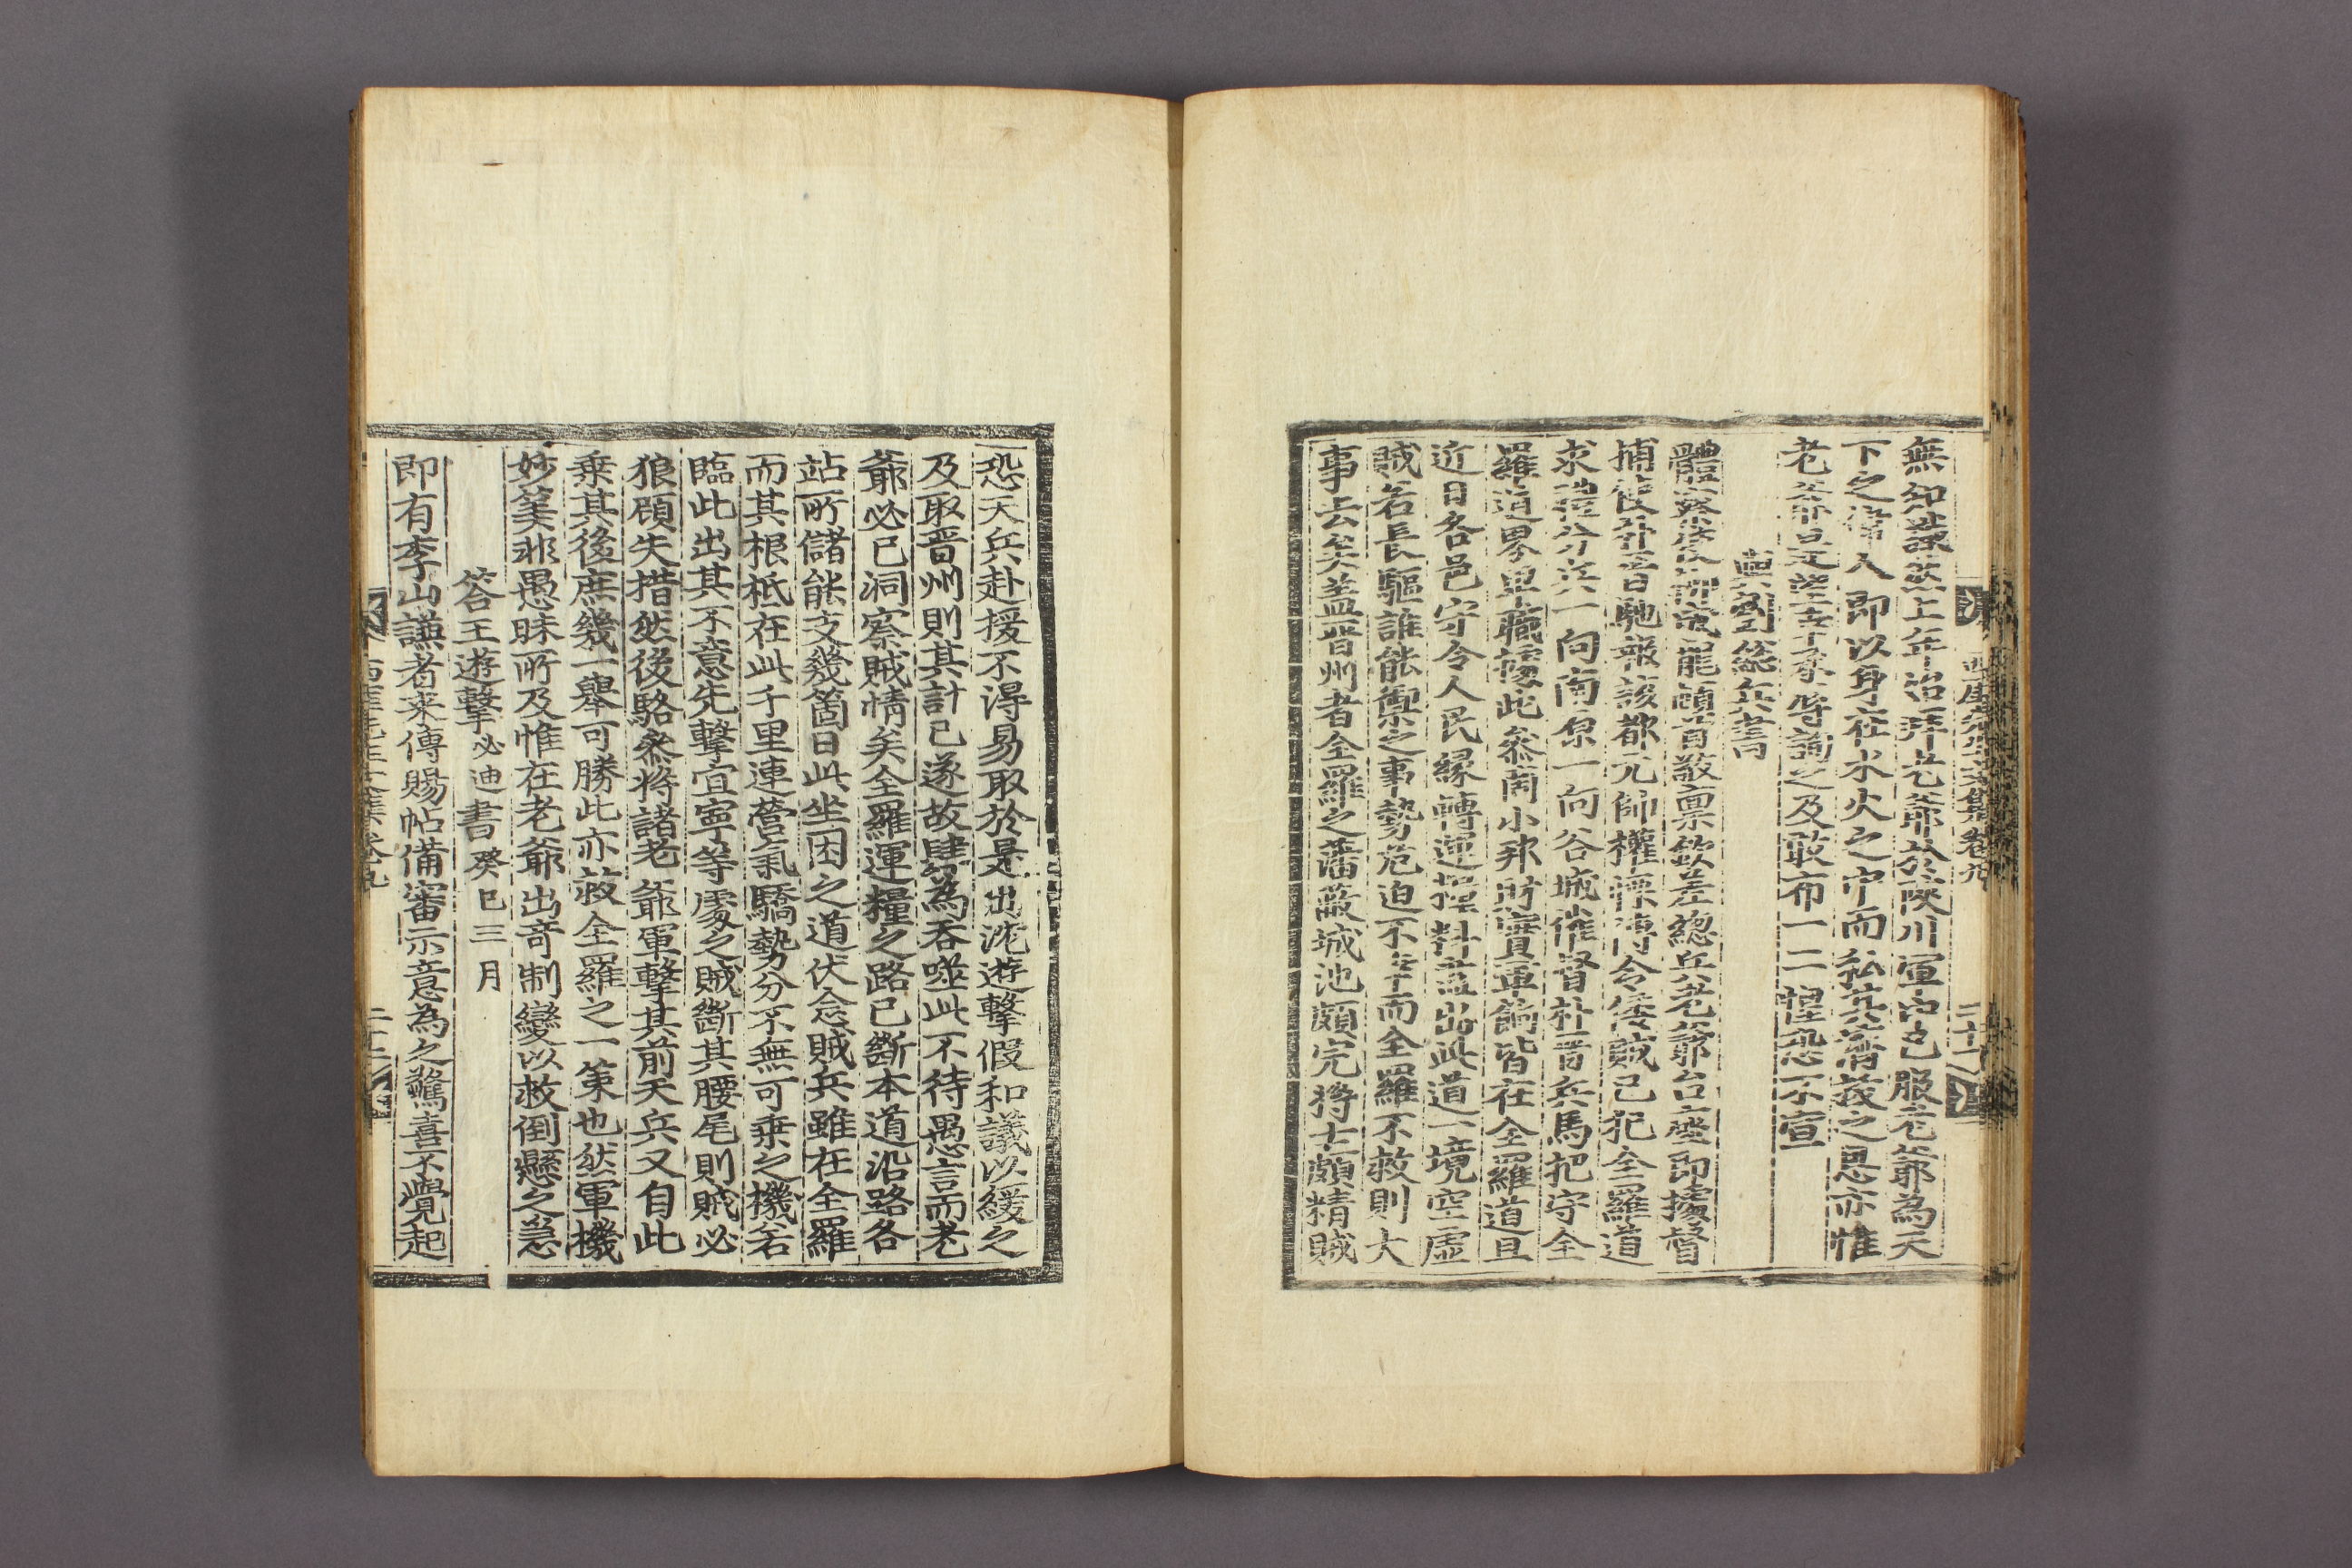 無印
下之偉人即以身在水火之中而私其濟救之恩亦惟
老爺是望
詢之及敢布一二惶恐不宣
與劉総兵書
體察柳成龍頓首敬禀欽差緫兵老爺台座即據督
捕
晋馳報該都元帥權慄傳令倭賊已犯全羅道
求禮分兵一向南原一向谷城催督朴晋兵馬把守全
羅道界卑職據此叅商小邦財賦軍餉皆在全羅道且
近日各邑守令人民縁轉運粮料並出此道一境空虛
賊若長驅誰能禦之事勢危迫不幸而全羅不救則大
事去矣盖晋州者全羅之藩蔽城池頗完將士頗精賊
恐天兵赴援不得易取於是出沈遊擊假和議以緩之
及取晋州則其計已遂故肆為吞噬此不待愚言而老
爺必已洞察賊情矣全羅運糧之路已斷本道沿路各
站所儲能支幾箇日此坐困之道伏念賊兵雖在全羅
而其根柢在此千里連營氣驕勢分不無可乗之機若
臨此出其不意先擊宜寧等處之賊斷其腰尾則賊必
狼顧失措然後駱叅將諸老爺軍擊其前天兵又自此
乗其後庶幾一舉可勝此亦救全羅之一策也然軍機
妙筭非愚昧所及惟在老爺出竒制變以救倒懸之急
答王遊擊必迪書癸巳三月
即有李山謙者来傳賜帖備審示意為之驚喜不覺起